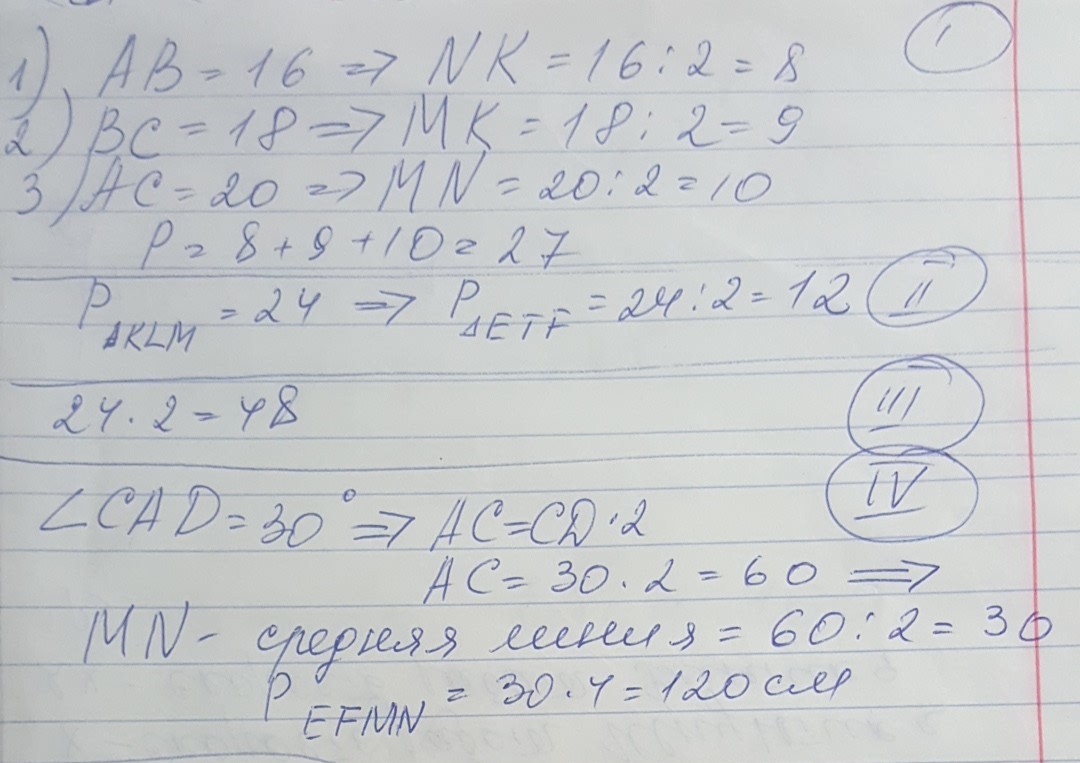 1) AB = 16 => NK = 16 : 2 = 8 I
2) BC = 18 => MK = 18 : 2 = 9
3) AC = 20 => MN = 20 : 2 = 10
P = 8 + 9 + 10 = 27
P△KLM = 24 => P△ETF = 24 : 2 = 12 II
24 · 2 = 48 III
IV
∠CAD = 30° => AC = CD · 2
AC = 30 · 2 = 60 =>
MN - средняя линия = 60 : 2 = 30
P EFMN = 30 · 4 = 120 см